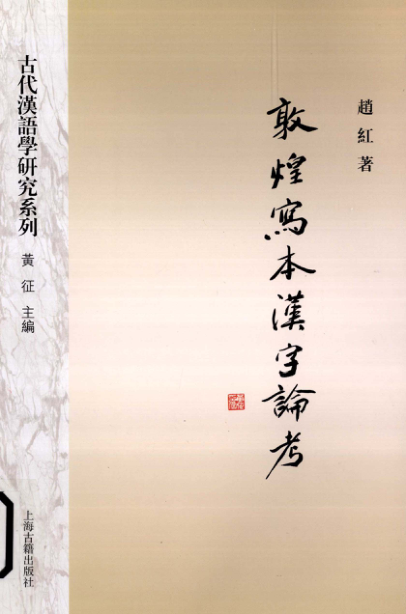 趙紅著
敦煌寫本漢字論考
古代漢語學研究系列
黃征 主編
上海古籍出版社